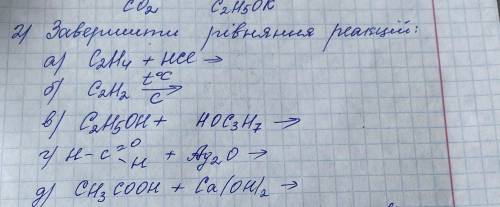 CO2 C2H5OK
2) Завершити рівняння реакцій:
а) C2H4 + HCl →
б) C2H2 t°C → C
в) C2H5OH + HOC3H7 →
г) H-C =O -H + Ag2O →
д) CH3COOH + Ca(OH)2 →